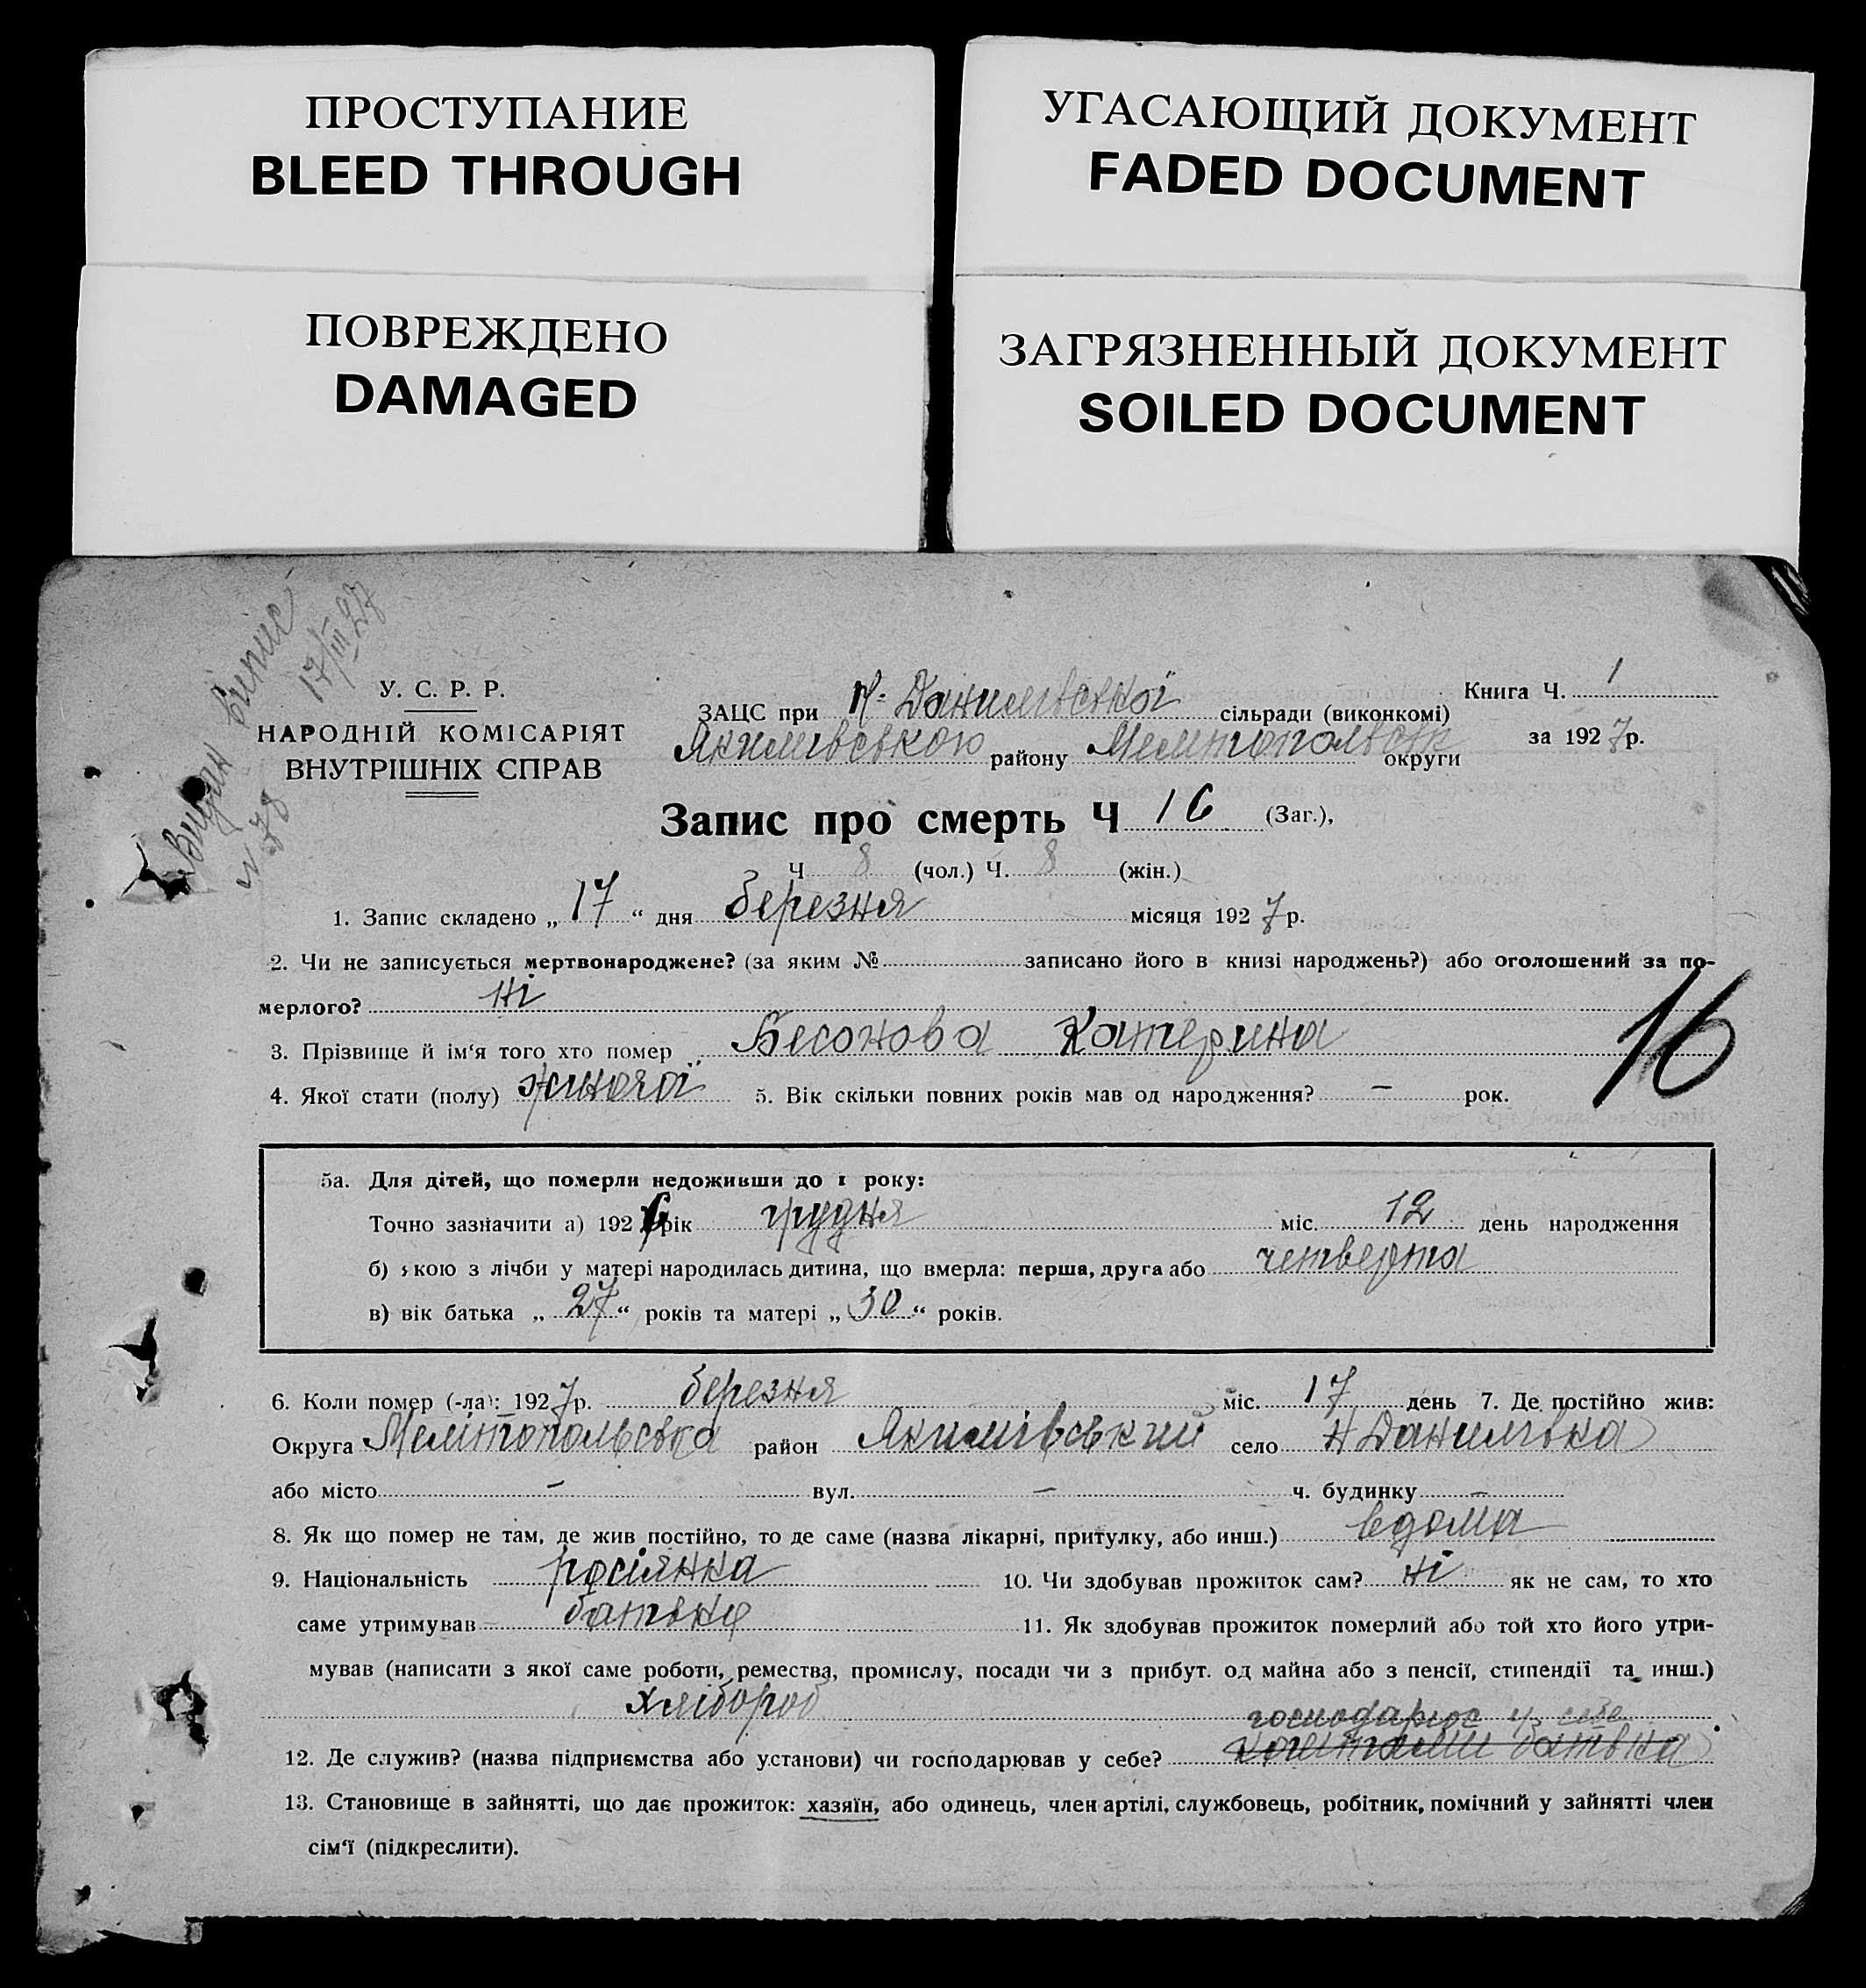 ПРОСТУПАНИЕ
BLEED THROUGH
УГАСАЮЩИЙ ДОКУМЕНТ
FADED DOCUMENT
ПОВРЕЖДЕНО
DAMAGED
ЗАГРЯЗНЕННЫЙ ДОКУМЕНТ
SOILED DOCUMENT
Видан випис
N 78
17/III 27
У. С. Р. Р.
НАРОДНІЙ КОМІСАРІЯТ
ВНУТРІШНІХ СПРАВ
ЗАЦС при Н-Данилівської сільради (виконкомі)
Якимівською району Мелітопольськ округи
Книга Ч. 1
за 1927р.
Запис про смерть Ч 16 (Заг.),
Ч 8 (чол.) Ч. 8 (жін.)
1. Запис складено „17“ дня березня місяця 1927р.
2. Чи не записується мертвонароджене? (за яким № записано його в книзі народжень?) або оголошений за по-
мерлого? ні
3. Прізвище й ім‘я того хто помер Бесонова Катерина
16
4. Якої стати (полу) жиночої 5. Вік скільки повних років мав од народження? – рок.
5а. Для дітей, що померли недоживши до 1 року:
Точно зазначити а) 1926 рік грудня міс. 12 день народження
б) якою з лічби у матері народилась дитина, що вмерла: перша, друга або четверта
в) вік батька „27“ років та матері „30“ років.
6. Коли помер (-ла): 1927р. березня міс. 17 день 7. Де постійно жив:
Округа Мелітопольська район Якимівський село Н Данилівка
або місто – вул. – ч. будинку –
8. Як що помер не там, де жив постійно, то де саме (назва лікарні, притулку, або инш.) вдома
9. Національність росіянка 10. Чи здобував прожиток сам? ні як не сам, то хто
саме утримував батьки 11. Як здобував прожиток померлий або той хто його утри-
мував (написати з якої саме роботи, ремества, промислу, посади чи з прибут. од майна або з пенсії, стипендії та инш.)
хлібороб
господарює у себе
12. Де служив? (назва підприємства або установи) чи господарював у себе? коштами батька
13. Становище в зайнятті, що дає прожиток: хазяїн, або одинець, член артілі, службовець, робітник, помічний у зайнятті член
сім‘ї (підкреслити).